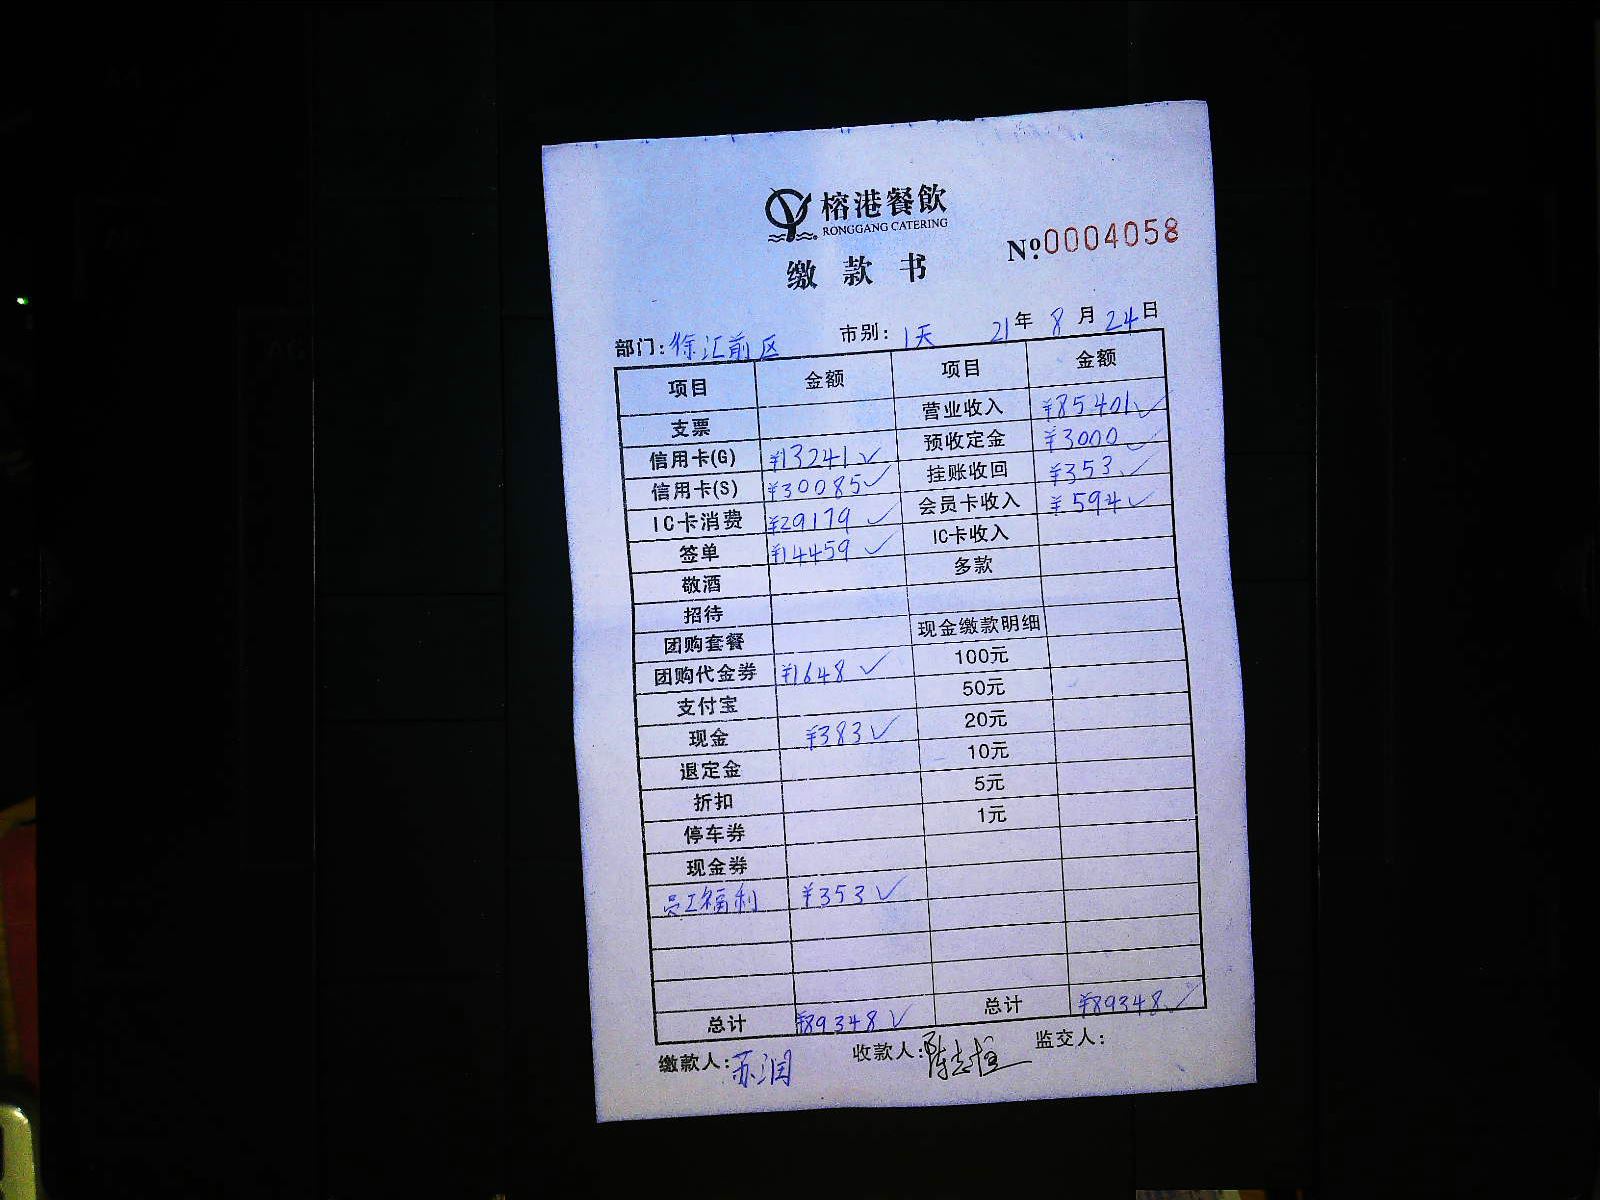 榕港餐飲
RONGGANG CATERING
缴款书
№0004058
部门:徐汇前区 市别:1天 21年8月24日
项目 金额 项目 金额
支票 营业收入 ¥85401✓
信用卡(G) ¥13241✓ 预收定金 ¥3000✓
信用卡(S) ¥30085✓ 挂账收回 ¥353✓
IC卡消费 ¥29179✓ 会员卡收入 ¥594✓
签单 ¥14459✓ IC卡收入
敬酒 多款
招待
团购套餐 现金缴款明细
团购代金券 ¥1648✓ 100元
支付宝 50元
现金 ¥383✓ 20元
退定金 10元
折扣 5元
停车券 1元
现金券
员工福利 ¥353✓
总计 ¥89348✓ 总计 ¥89348✓
缴款人:苏润 收款人:陈志 监交人: